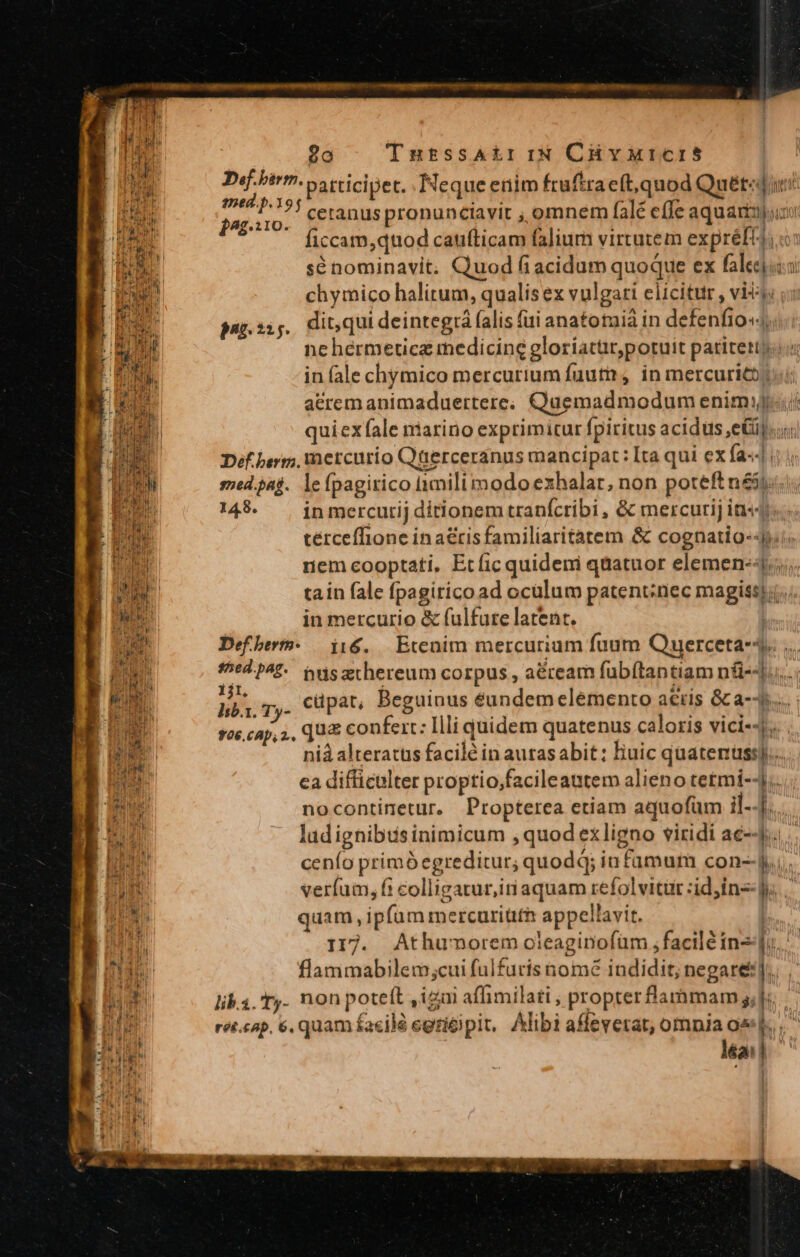 80 THESSALI IN CHYMICIS
Def.herm. participet. Neque enim frustra est, quod Querce-
med.p.195 cetanus pronunciavit, omnem salé esse aquam
pag.210. siccam, quod causticam salium virtutem expres-
sè nominavit. Quod si acidum quoque ex sale
chymico halitum, qualis ex vulgari elicitur, vi-
pag.225. dit, qui de integrâ salis sui anatomiâ in defensio-
ne hermeticæ medicinę gloriatur, potuit pariter
in sale chymico mercurium suum, in mercurio
aërem animaduertere. Quemadmodum enim
qui ex sale marino exprimitur spiritus acidus, eũ
Def.herm. mercurio Querceranus mancipat: Ita qui ex sa-
med.pag. le spagirico simili modo exhalat, non potest nõ
148. in mercurij ditionem transcribi, & mercurij in-
terceßione in aëris familiaritatem & cognatio-
nem cooptati. Et sic quidem quatuor elemen-
ta in sale spagirico ad oculum patent: nec magis
in mercurio & sulfure latent.
Def.herm. 116. Etenim mercurium suum Querceta-
med.pag. nus æthereum corpus, aëream substantiam nũ-
131.
lib.1. Ty- cupat, Beguinus eundem elemento aëris & a-
roc.cap.2. quæ confert: Illi quidem quatenus caloris vici-
niâ alteratus facilè in auras abit: huic quatenus
ea difficulter proprio, facile autem alieno termi-
no continetur. Propterea etiam aquosum il-
lud ignibus inimicum, quod ex ligno viridi ac-
censo primò egreditur, quodq́; in fumum con-
versum, si colligatur, in aquam resolvitur: id, in-
quam, ipsum mercurium appellavit.
117. At humorem oleaginosum, facilè in-
flammabilem, cui sulfuris nomẽ indidit, negare
lib.1. Ty- non potest, igni assimilati, propter flammam,
roc.cap. 6. quam facilè concipit. Alibi asseverat, omnia o-
lea